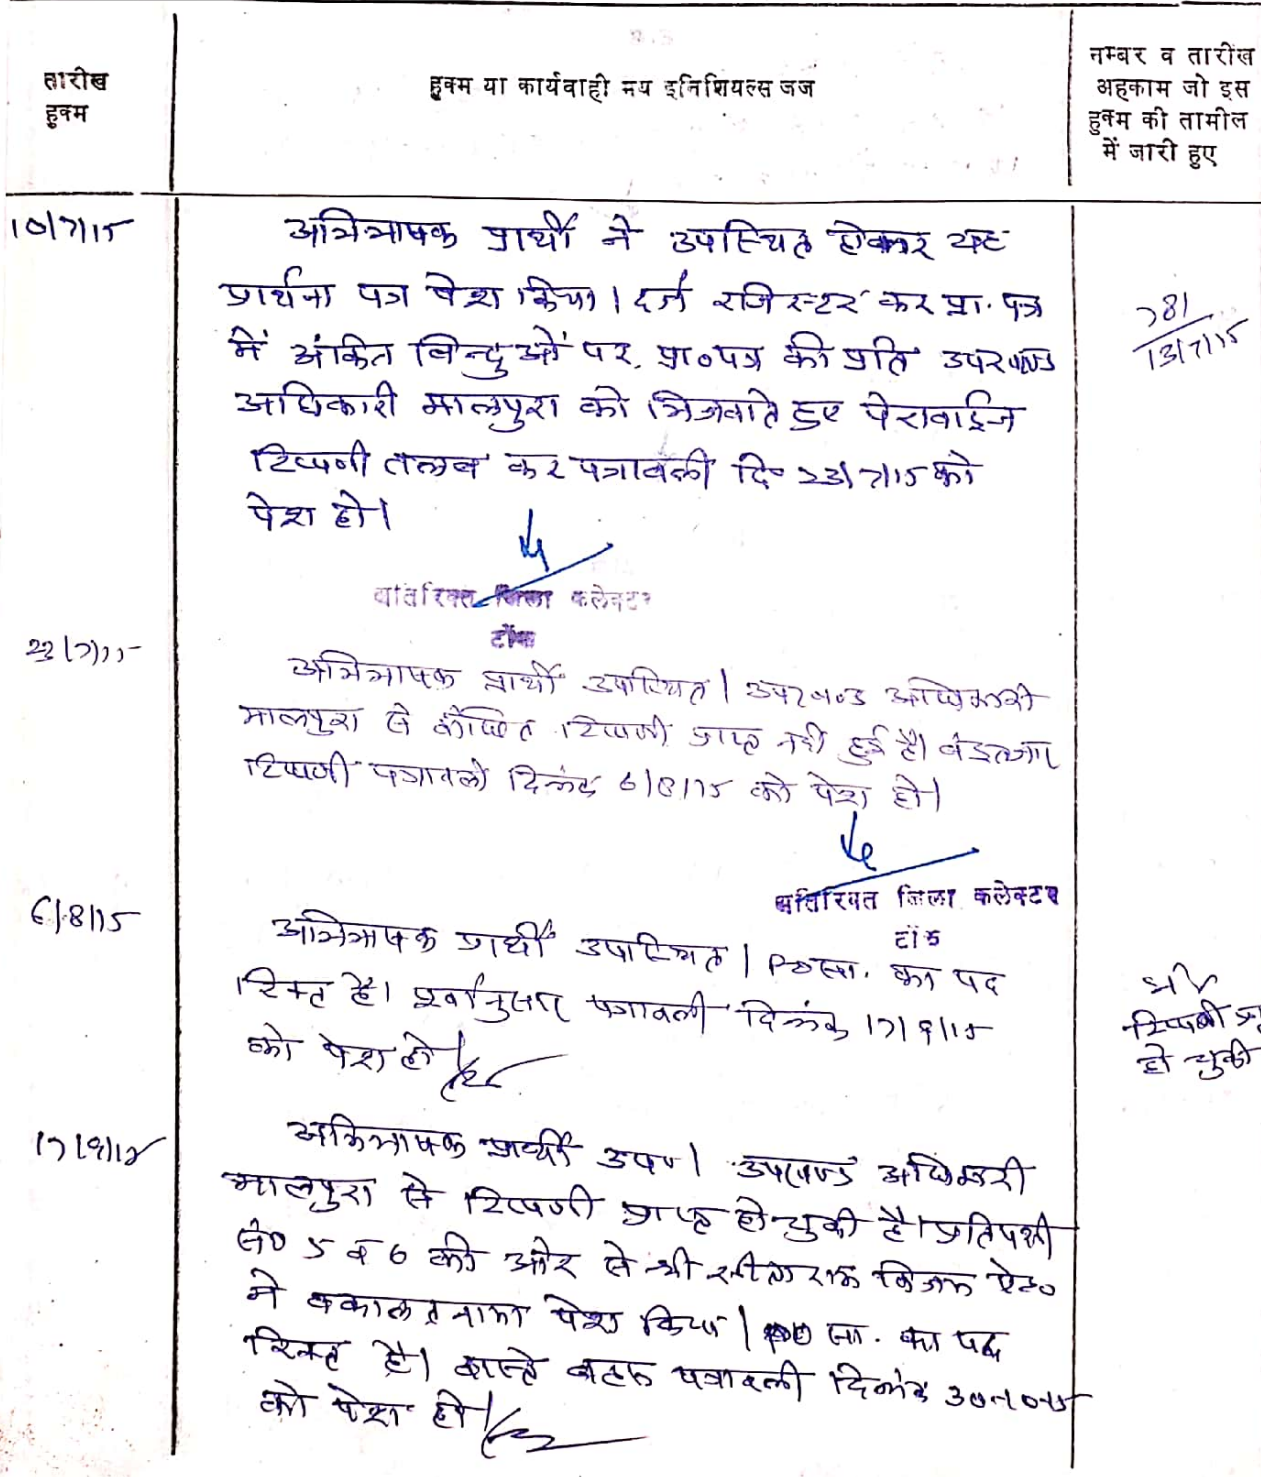 तारीख
हुक्म
हुक्म या कार्यवाही मय इनिशियल्स जज
नम्बर व तारीख
अहकाम जो इस
हुक्म की तामील
में जारी हुए
10/7/15
अभिभाषक प्रार्थी ने उपस्थित होकर यह
प्रार्थना पत्र पेश किया। दर्ज रजिस्टर कर प्रा. पत्र
में अंकित बिन्दुओं पर प्रा०पत्र की प्रति उपखण्ड
अधिकारी मालपुरा को भिजवाते हुए पेरावाईज
टिप्पणी तलब कर पत्रावली दि० 23/7/15 को
पेश हो।
781
13/7/15
अतिरिक्त जिला कलेक्टर
टोंक
23/7/15
अभिभाषक प्रार्थी उपस्थित। उपखण्ड अधिकारी
मालपुरा से टिप्पणी प्राप्त नहीं हुई है। वइन्तजार
टिप्पणी पत्रावली दिनांक 6/8/15 को पेश हो।
अतिरिक्त जिला कलेक्टर
टोंक
6/8/15
अभिभाषक प्रार्थी उपस्थित। का पद
रिक्त है। पूर्वानुसार पत्रावली दिनांक 17/9/15
को पेश हो
टिप्पणी
हो चुकी
17/9/15
अभिभाषक प्रार्थी उप०। उपखण्ड अधिकारी
मालपुरा से टिप्पणी प्राप्त हो चुकी है। प्रतिपक्षी
सं० 5 व 6 की ओर से श्री सीताराम विजय ऐड०
ने वकालतनामा पेश किया। का पद
रिक्त है। वास्ते बहस पत्रावली दिनांक 30-10-15
को पेश हो।